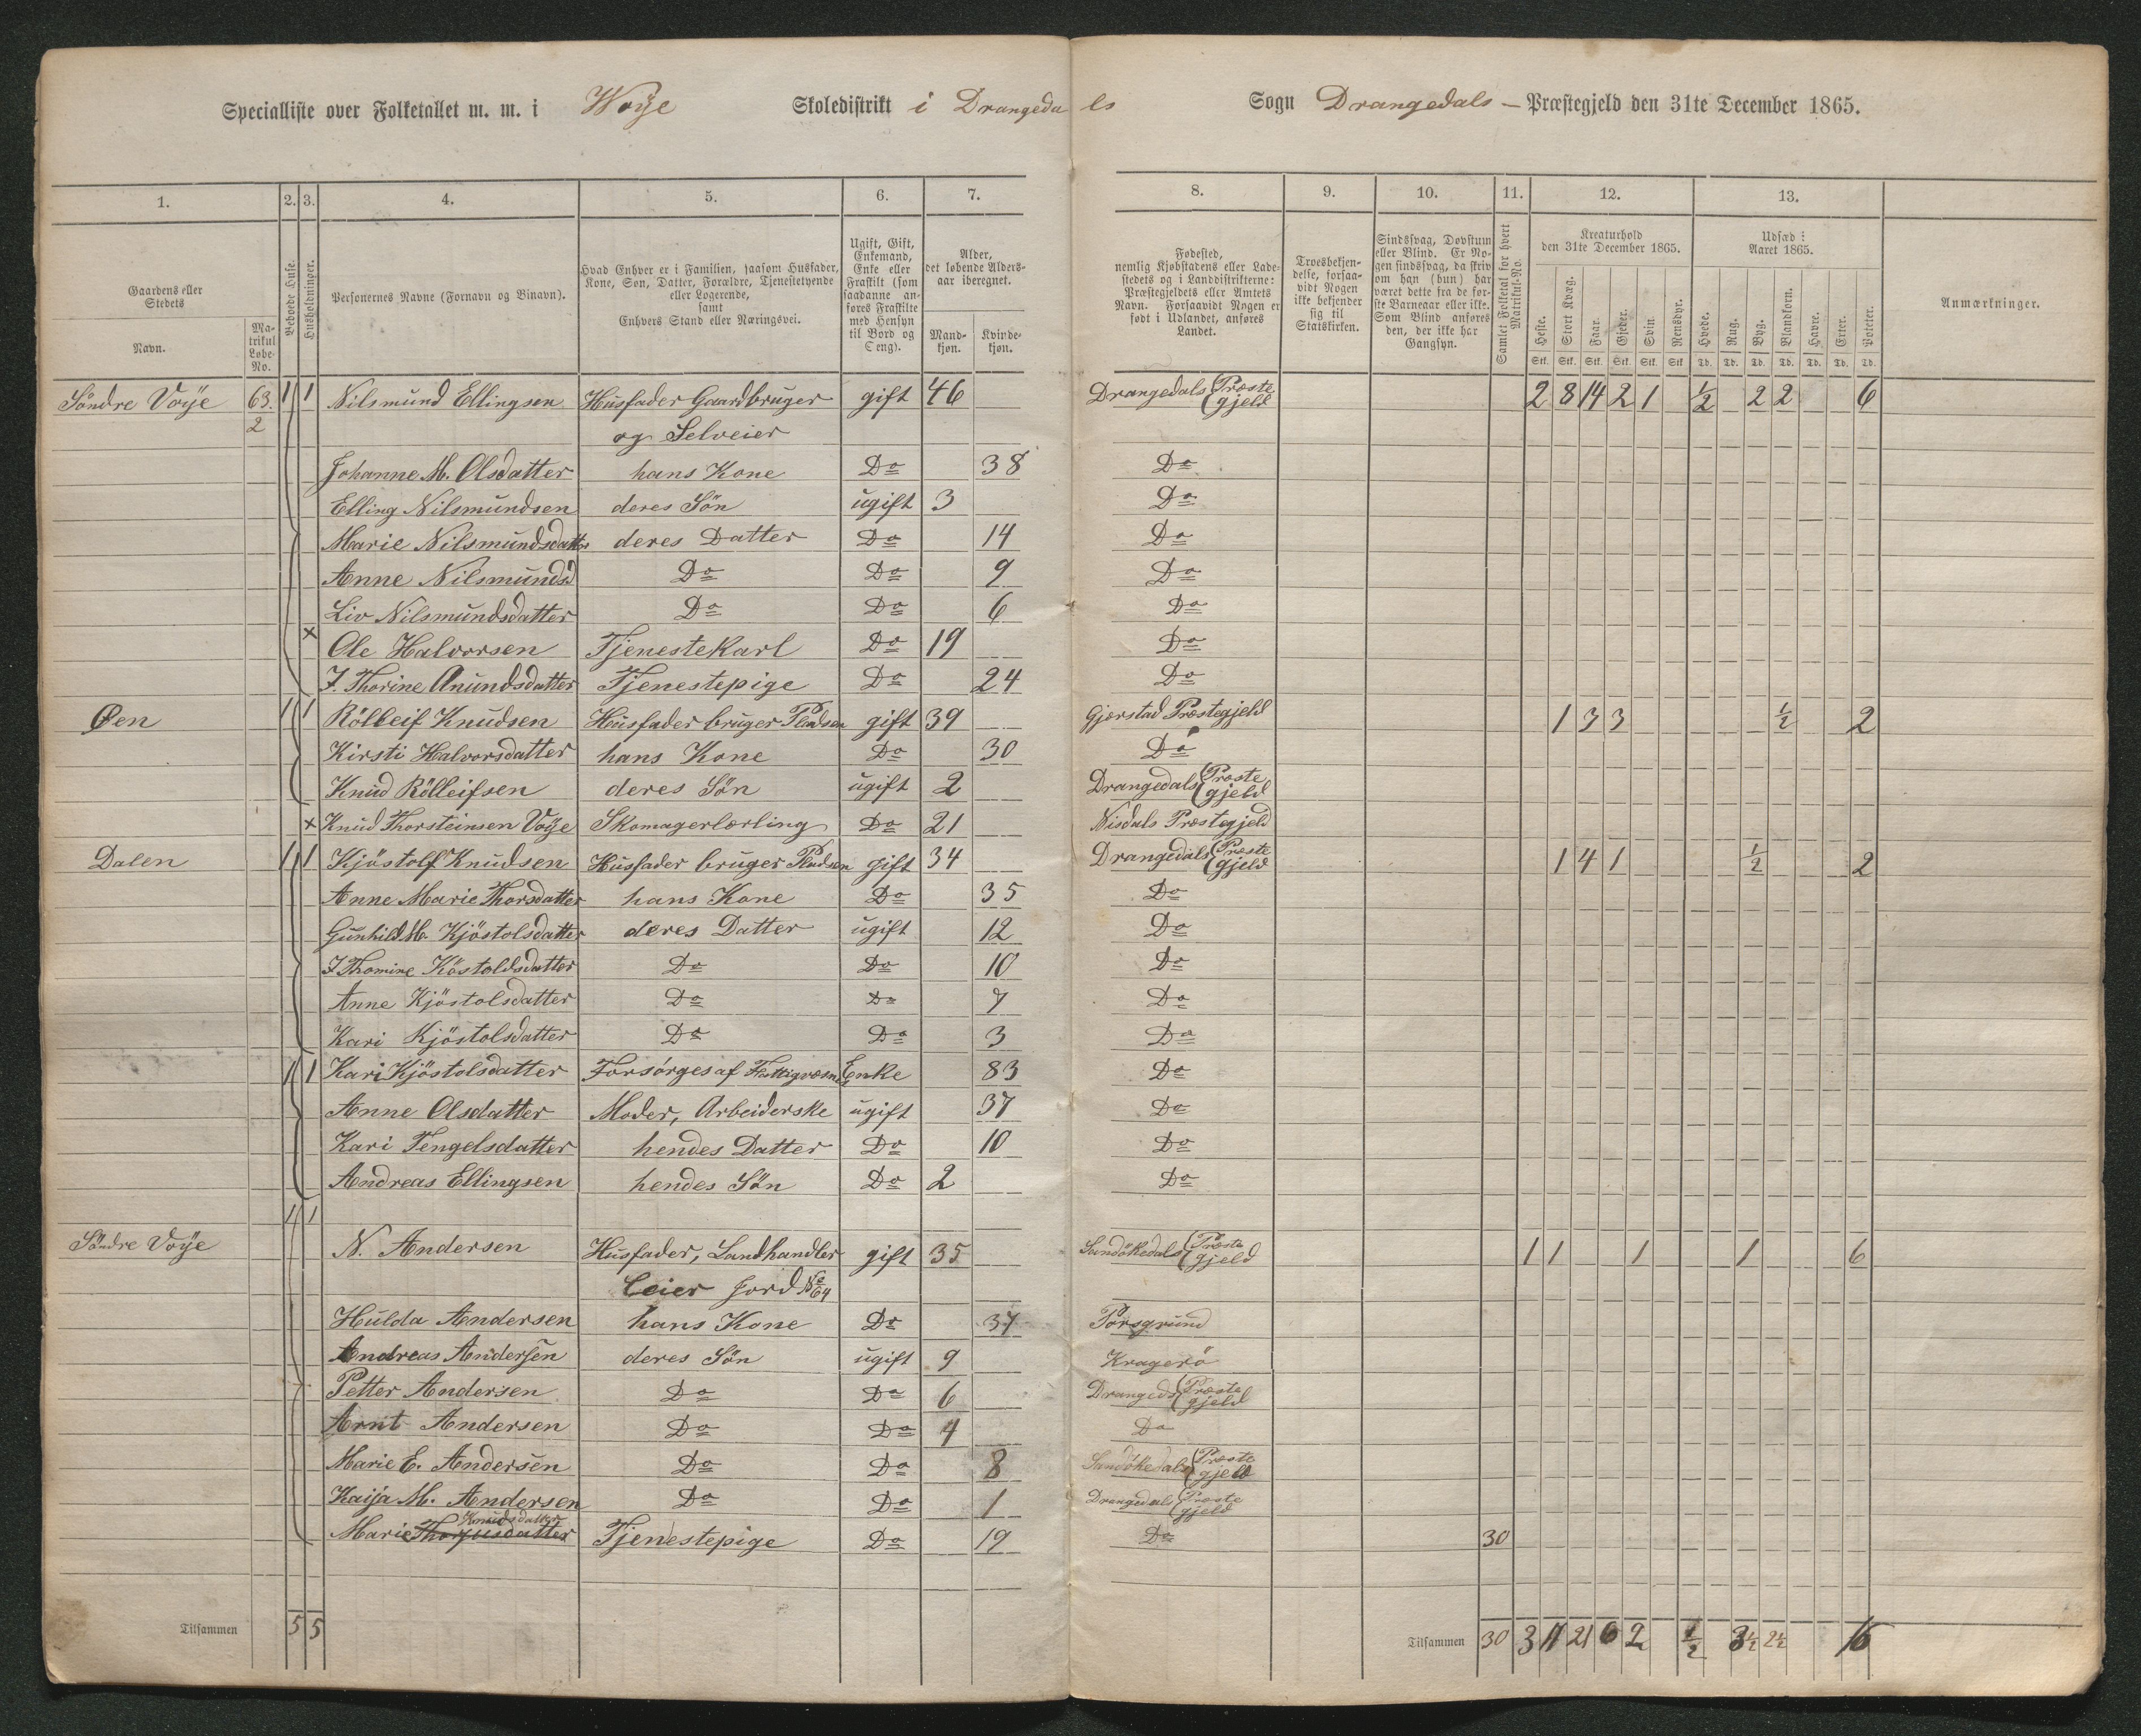 Specialliste over Folketallet m. m. i Woije Skoledistrikt i Drangedals Sogn Drangedals - Præstegjeld den 31te December 1865.
1. 2. 3. 4. 5. 6. 7. 8. 9. 10. 11. 12. 13.
Gaardens eller Stedets
Navn.
Matrikul Løbe-No.
Beboede Huse.
Husholdninger.
Personernes Navne (Fornavn og Binavn).
Hvad Enhver er i Familien, saasom Husfader, Kone, Søn, Datter, Forældre, Tjenestetyende eller Logerende, samt Enhvers Stand eller Næringsvei.
Ugift, Gift, Enkemand, Enke eller Fraskilt (som saadanne anføres Fraskilte med Hensyn til Bord og Seng).
Alder, det løbende Alders-aar iberegnet.
Mand-kjøn. Kvinde-kjøn.
Fødested, nemlig Kjøbstadens eller Ladestedets og i Landdistrikterne: Præstegjeldets eller Amtets Navn. Forsaavidt Nogen er født i Udlandet, anføres Landet.
Troesbekjendelse, forsaavidt Nogen ikke bekjender sig til Statskirken.
Sindssvag, Døvstum eller Blind. Er Nogen sindssvag, da skrives om han (hun) har været dette fra de første Barneaar eller ikke. Som Blind anføres den, der ikke har Gangsyn.
Samlet Folketal for hvert Matrikul-No.
Kreaturhold den 31te December 1865.
Heste. Stort Kvæg. Faar. Gjeder. Svin. Rensdyr.
Stk. Stk. Stk. Stk. Stk. Stk
Udsæd i Aaret 1865.
Hvede. Rug. Byg. Blandkorn. Havre. Erter. Poteter.
Td. Td. Td. Td. Td. Td. Td.
Anmærkninger.
Söndre Voije 63. 1 1 Nilsmund Ellingsen Husfader Gaardbruger gift 46 Drangedals Præstegjeld 2 8 14 2 1 ½ 2 2 6
2 og Selveier
Johanne M. Olsdatter hans Kone Do 38 Do
Elling Nilsmundsen deres Sön ugift 3 Do
Marie Nilsmundsdatter deres Datter Do 14 Do
Anne Nilsmundsd Do Do 9 Do
Liv Nilsmundsdatter Do Do 6 Do
× Ole Halvorsen Tjenestekarl Do 19 Do
J. Thorine Anundsdatter Tjenestepige Do 24 Do
Øen 1 1 Rölleif Knudsen Husfader bruger Pladsen gift 39 Gjerstad Præstegjeld 1 3 3 ½ 2
Kirsti Halvorsdatter hans Kone Do 30 Do
Knud Rölleifsen deres Sön ugift 2 Drangedals Præstegjeld
× Knud Thorsteinsen Voije Skomagerlærling Do 21 Nisdals Præstegjeld
Dalen 1 1 Kjöstolf Knudsen Husfader bruger Pladsen gift 34 Drangedals Præstegjeld 1 4 1 ½ 2
Anne Marie Thorsdatter hans Kone Do 35 Do
Gunhild M. Kjöstolsdatter deres Datter ugift 12 Do
J Thomine Köstoldsdatter Do Do 10 Do
Anne Kjöstolsdatter Do Do 7 Do
Kari Kjöstolsdatter Do Do 3 Do
1 1 Kari Kjöstolsdatter Forsørges af Fattigvæsnet Enke 83 Do
Anne Olsdatter Moder, Arbeiderske ugift 37 Do
Kari Tengelsdatter hendes Datter Do 10 Do
Andreas Ellingsen hendes Sön Do 2 Do
1 1
Söndre Voije N. Andersen Husfader, Landhandler gift 35 Sandökedals Præstegjeld 1 1 1 1 6
Leier Jord No 64
Hulda Andersen hans Kone Do 37 Porsgrund
Andreas Andersen deres Sön ugift 9 Kragerö
Petter Andersen Do Do 6 Drangeds Præstegjeld
Arnt Andersen Do Do 4 Do
Marie E. Andersen Do Do 8 Sandökedals Præstegjeld
Kaija M. Andersen Do Do 1 Drangedals Præstegjeld
Knudsdatter
Marie Thorjusdatter Tjenestepige Do 19 Do 30
Tilsammen 5 5 Tilsammen 30 3 11 21 6 2 ½ 3½ 2½ 16